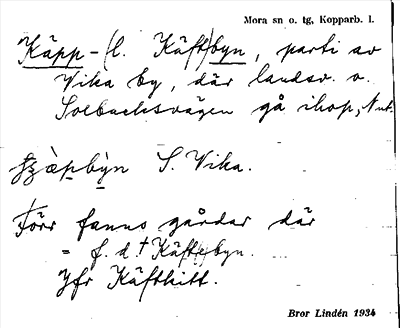 Mora sn o. tg, Kopparb. l.
Käpp- (l. Käft)byn, parti av
Vika by, där landsv. o.
Solbacksvägen gå ihop,
S. Vika.
Förr fanns gårdar där
= f. d. † Käft(e)byn.
Jfr Käfthitt.
Bror Lindén 1934